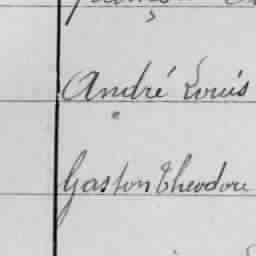 André Louis
Gaston Theodore